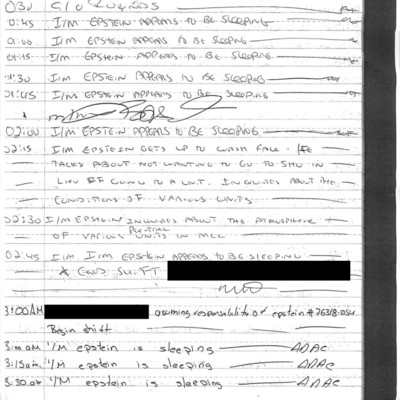 0:30 C/O ROUNDS
0:45 I/M EPSTEIN APPEARS TO BE SLEEPING
01:00 I/M EPSTEIN APPEARS TO BE SLEEPING
01:15 I/M EPSTEIN APPEARS TO BE SLEEPING
01:30 I/M EPSTEIN APPEARS TO BE SLEEPING
01:45 I/M EPSTEIN APPEARS TO BE SLEEPING
02:00 I/M EPSTEIN APPEARS TO BE SLEEPING
02:15 I/M EPSTEIN GETS UP TO WASH FACE. HE
TALKS ABOUT NOT WANTING TO GO TO SHU IN
LIEU OF GOING TO A UNIT. INQUIRES ABOUT THE
CONDITIONS OF VARIOUS UNITS
02:30 I/M EPSTEIN INQUIRES ABOUT THE ATMOSPHERE
OF VARIOUS PRE-TRIAL UNITS IN MCC
02:45 I/M EPSTEIN APPEARS TO BE SLEEPING
* END SHIFT
3:00AM assuming responsibility of epstein # 76318-054
Begin shift
3:00 am I/M epstein is sleeping
3:15am I/M epstein is sleeping
3:30 am I/M epstein is sleeping